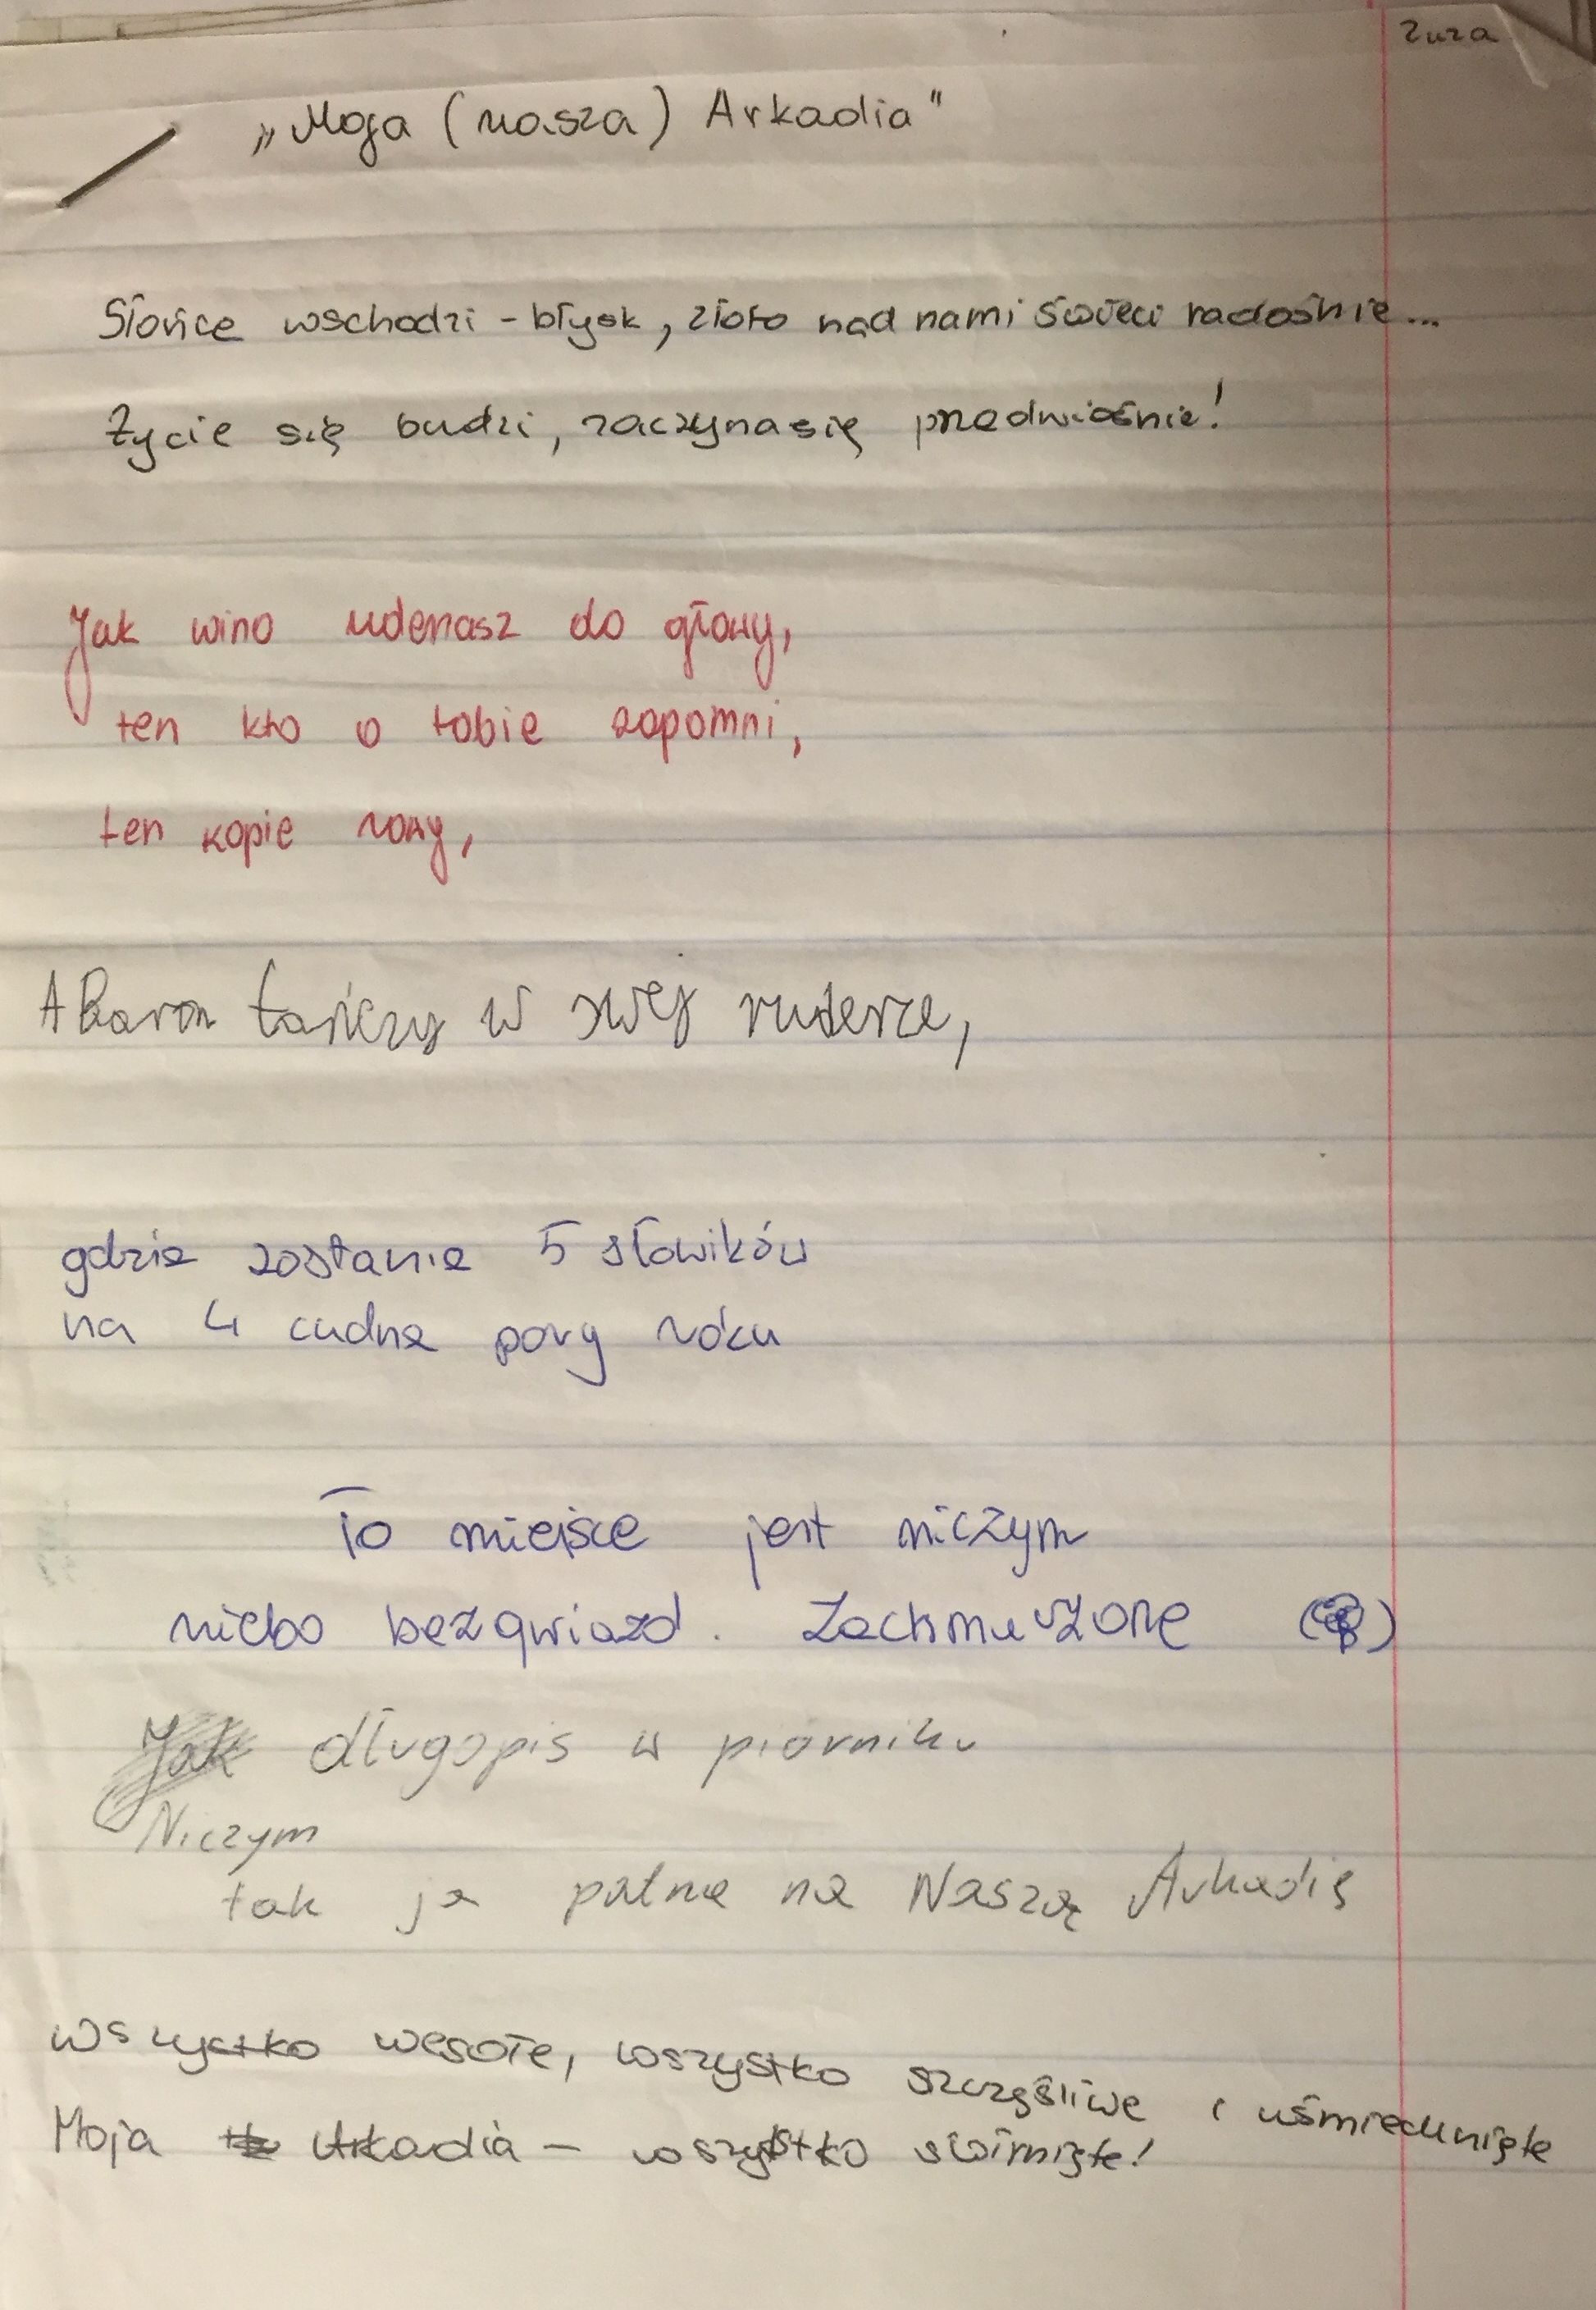 Zuza
„Moja (nasza) Arkadia"
Słońce wschodzi - błysk, złoto nad nami świeci radośnie...
Życie się budzi, zaczyna się przedwiośnie!
Jak wino uderzasz do głowy,
ten kto o tobie zapomni,
ten kopie rowy,
A Baron tańczy w swej ruderze,
gdzie zostanie 5 słowików
na 4 cudne pory roku
To miejsce jest niczym
niebo bez gwiazd. Zachmurzone
Jak długopis w piórniku
Niczym
tak ja patrze na Naszą Arkadię
wszystko wesołe, wszystko szczęśliwe i uśmiechnięte
Moja Arkadia – wszystko świrnięte!